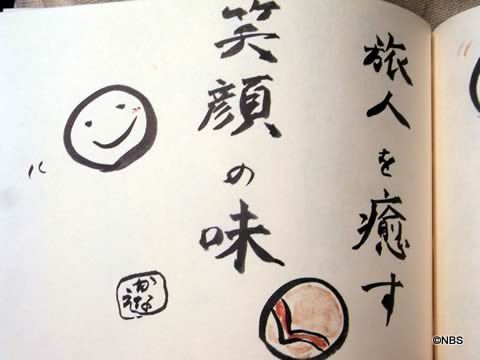 旅人を癒す
笑顔の味
©NBS